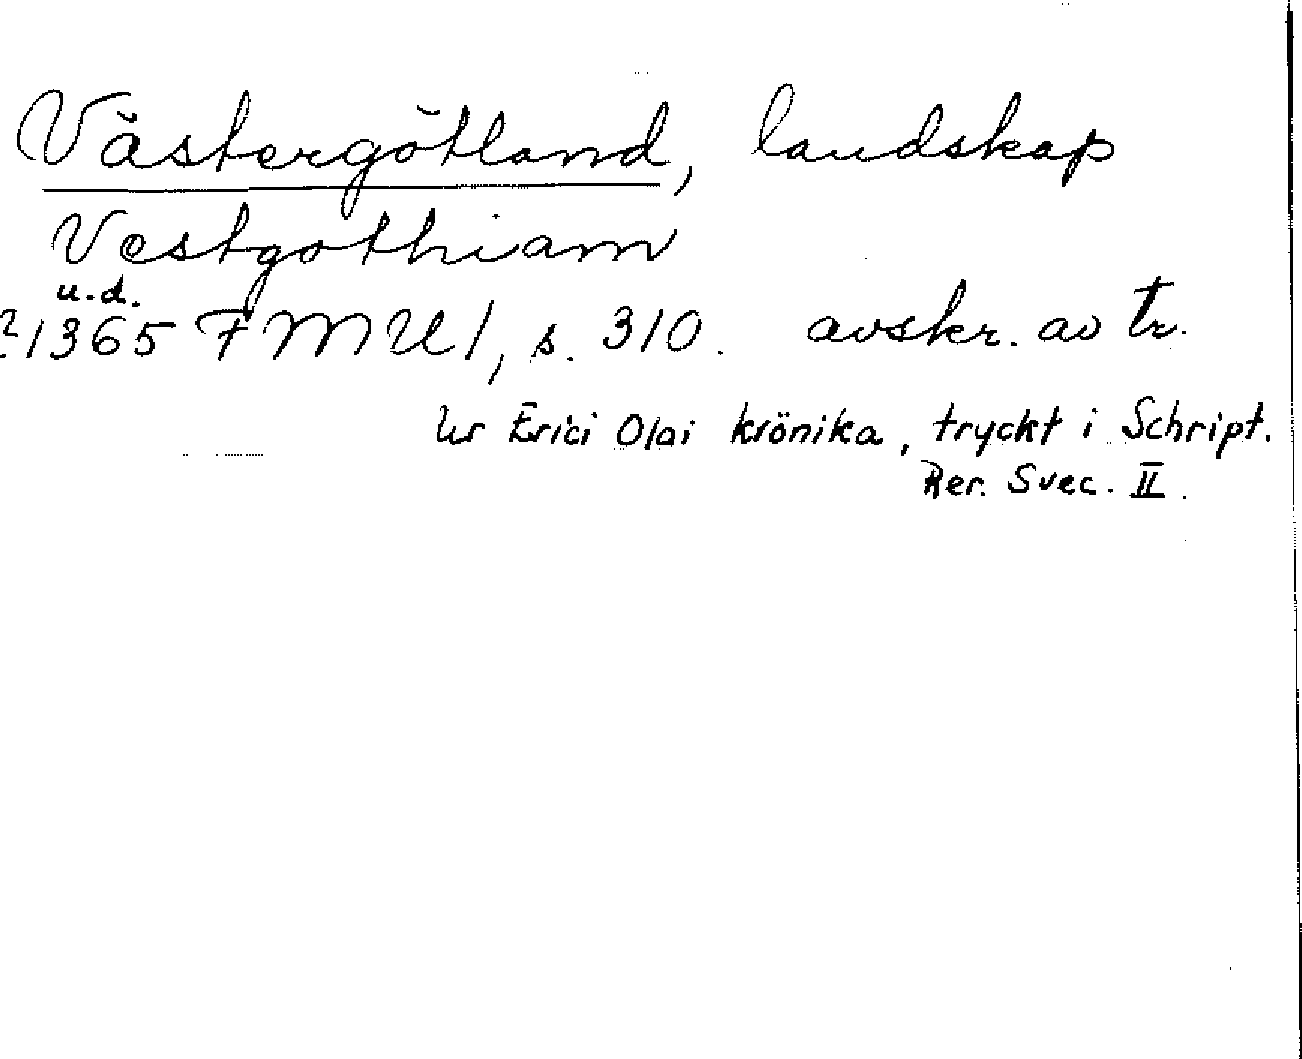 Västergötland, landskap
Vestgothiam
u.d.
1365 FMU 1, s. 310. avskr. av tr.
Ur Erici Olai krönika, tryckt i Schript.
Rer. Svec. II.